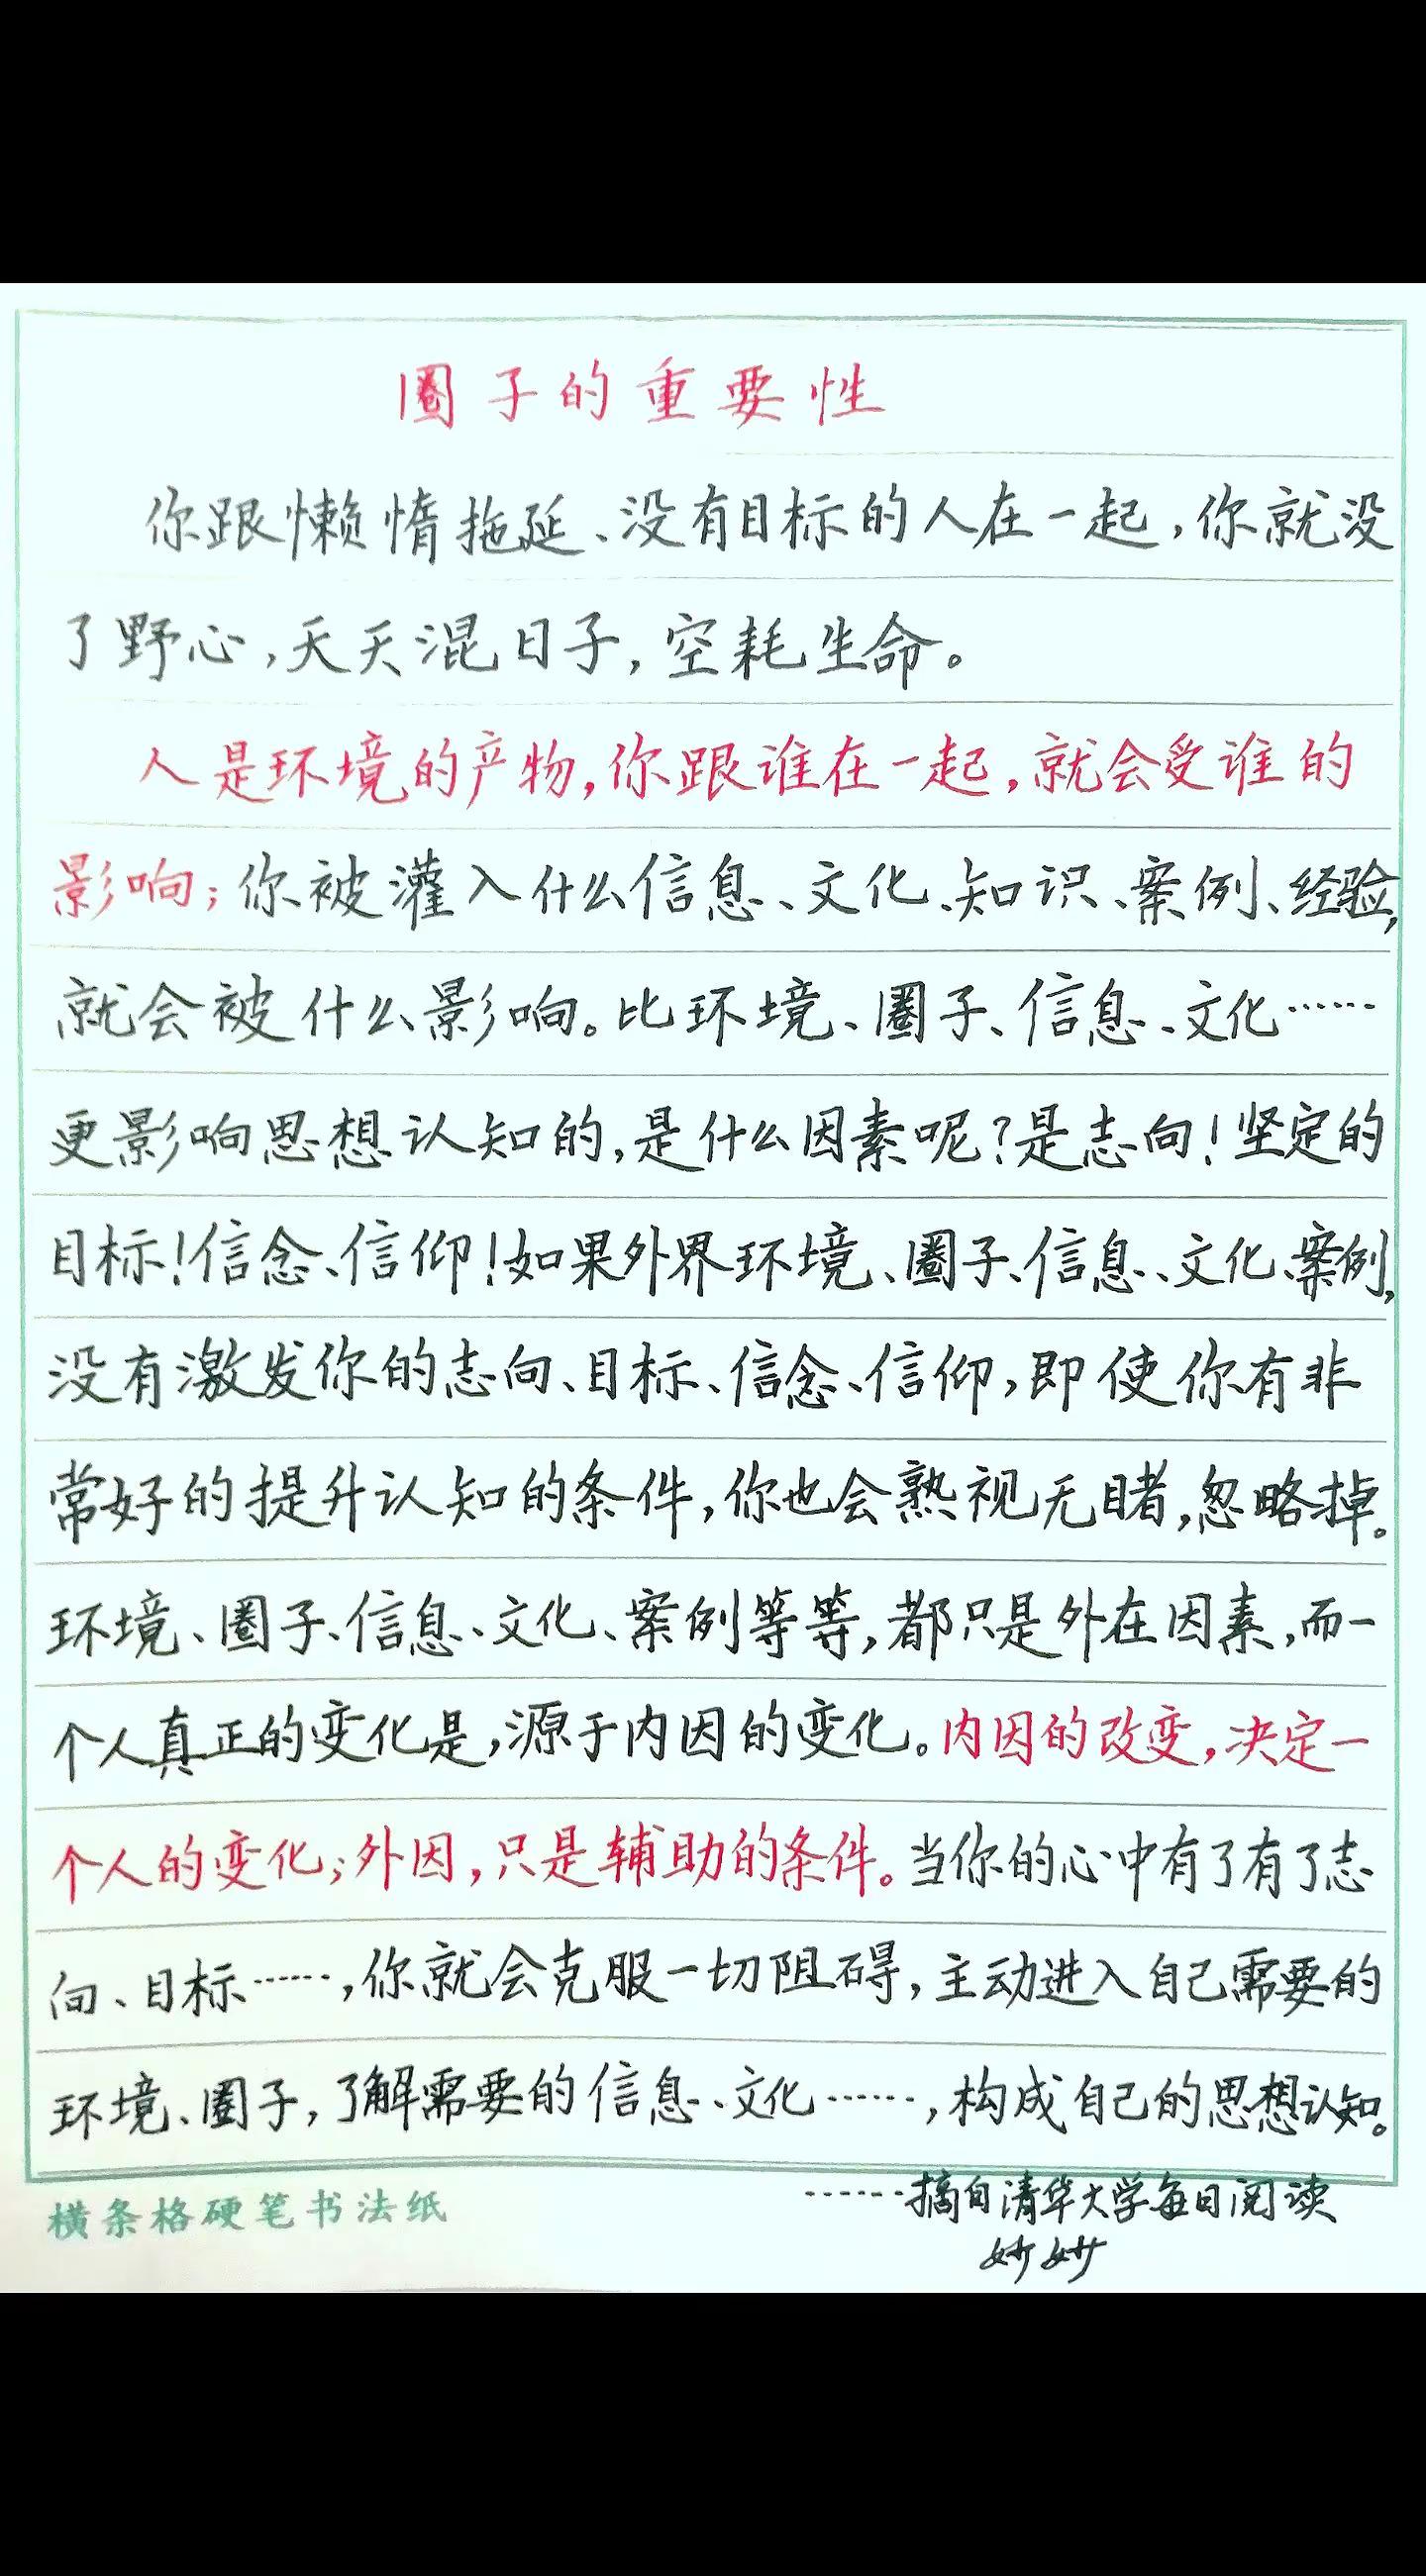 圈子的重要性
你跟懒惰拖延、没有目标的人在一起,你就没
了野心,天天混日子,空耗生命。
人是环境的产物,你跟谁在一起,就会受谁的
影响;你被灌入什么信息、文化、知识、案例、经验,
就会被什么影响。比环境、圈子、信息、文化……
更影响思想认知的,是什么因素呢?是志向!坚定的
目标!信念、信仰!如果外界环境、圈子、信息、文化、案例,
没有激发你的志向、目标、信念、信仰,即使你有非
常好的提升认知的条件,你也会熟视无睹,忽略掉。
环境、圈子、信息、文化、案例等等,都只是外在因素,而一
个人真正的变化是,源于内因的变化。内因的改变,决定一
个人的变化;外因,只是辅助的条件。当你的心中有了有了志
向、目标……,你就会克服一切阻碍,主动进入自己需要的
环境、圈子,了解需要的信息、文化……,构成自己的思想认知。
……摘自清华大学每日阅读
横条格硬笔书法纸
妙妙